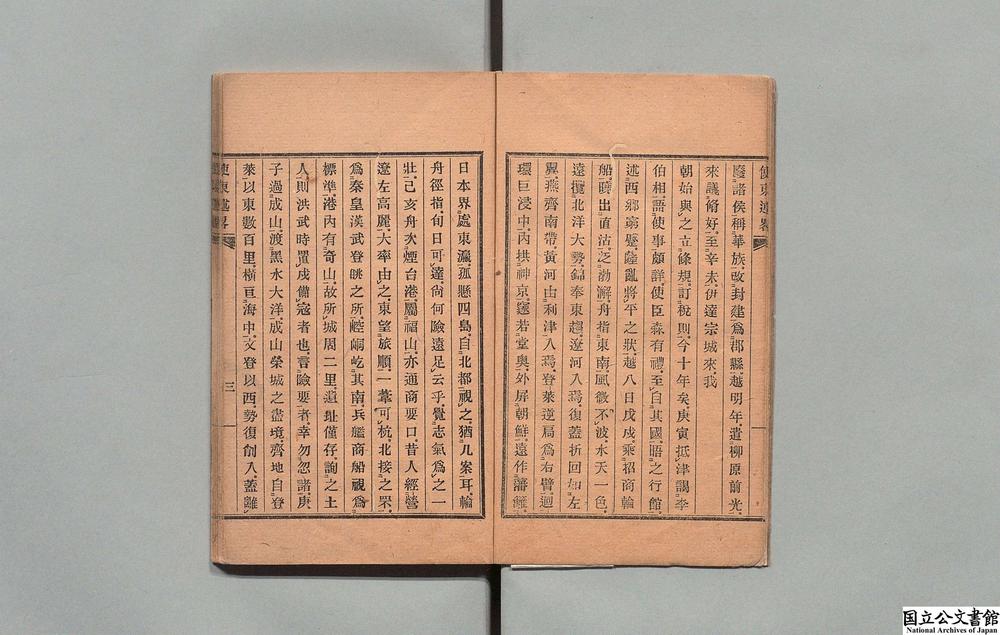 使東述略
廢諸侯、稱華族、改封建、爲郡縣、越明年、遣柳原前光、
來議脩好、至辛未、伊達宗城來、我
朝始與之立條規、訂稅則、今十年矣、庚寅抵津、謁李
伯相、語使事頗詳、使臣森有禮、至自其國、晤之行館、
述西鄉窮蹙、薩亂將平之狀、越八日戊戌、乘招商輪
船、碶出直沽、泛勃澥、舟指東南、風微不波、水天一色、
遠攬北洋大勢、錦奉東趨、遼河入焉、復蓋折回如左
翼、燕齊南帶、黃河由利津入焉、登萊逆扃爲右臂、迴
環巨浸中、內拱神京、窔若堂奧、外屏朝鮮、遠作藩籬、
日本界處東瀛、孤懸四島、自北都視之、猶几案耳、輪
舟徑指、旬日可達、尙何險遠足云乎、覺志氣爲之一
壯、己亥舟次煙台港、屬福山、亦通商要口、昔人經營
遼左高麗、大率由之、東望旅順、一葦可杭、北接之罘、
爲秦皇漢武登眺之所、崆峒屹其南、兵艦商船視爲
標準、港內有奇山、故所城周二里、遺址僅存、詢之土
人、則洪武時置戍備寇者也、言險要者、幸勿忽諸、庚
子過成山、渡黑水大洋、成山榮城之盡境、齊地自登
萊以東、數百里橫亘海中、文登以西、勢復劃入、蓋離
使東述略
三
国立公文書館
National Archives of Japan